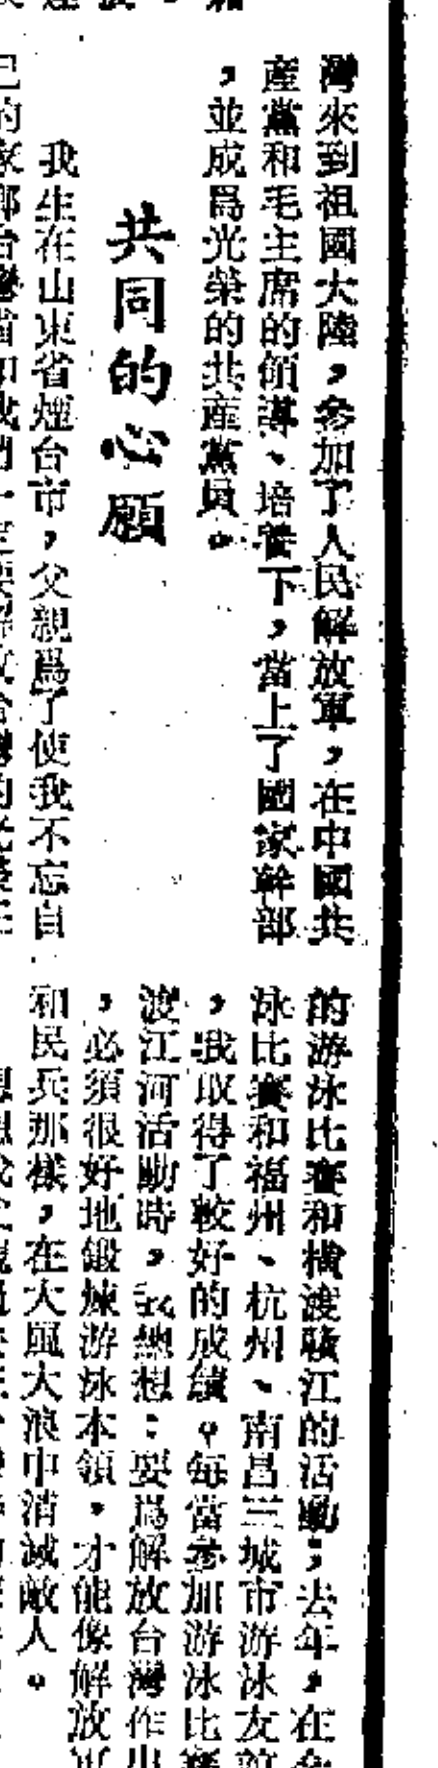 灣來到祖國大陸，參加了人民解放軍，在中國共
產黨和毛主席的領導、培養下，當上了國家幹部
，並成爲光榮的共產黨員。
共同的心願
我生在山東省煙台市，父親爲了使我不忘自
的游泳比賽和橫渡贛江的活動；去年，在
泳比賽和福州、杭州、南昌三城市游泳友
，我取得了較好的成績。每當參加游泳比賽
渡江河活動時，我總想：要爲解放台灣作出
，必須很好地鍛煉游泳本領，才能像解放軍
和民兵那樣，在大風大浪中消滅敵人。